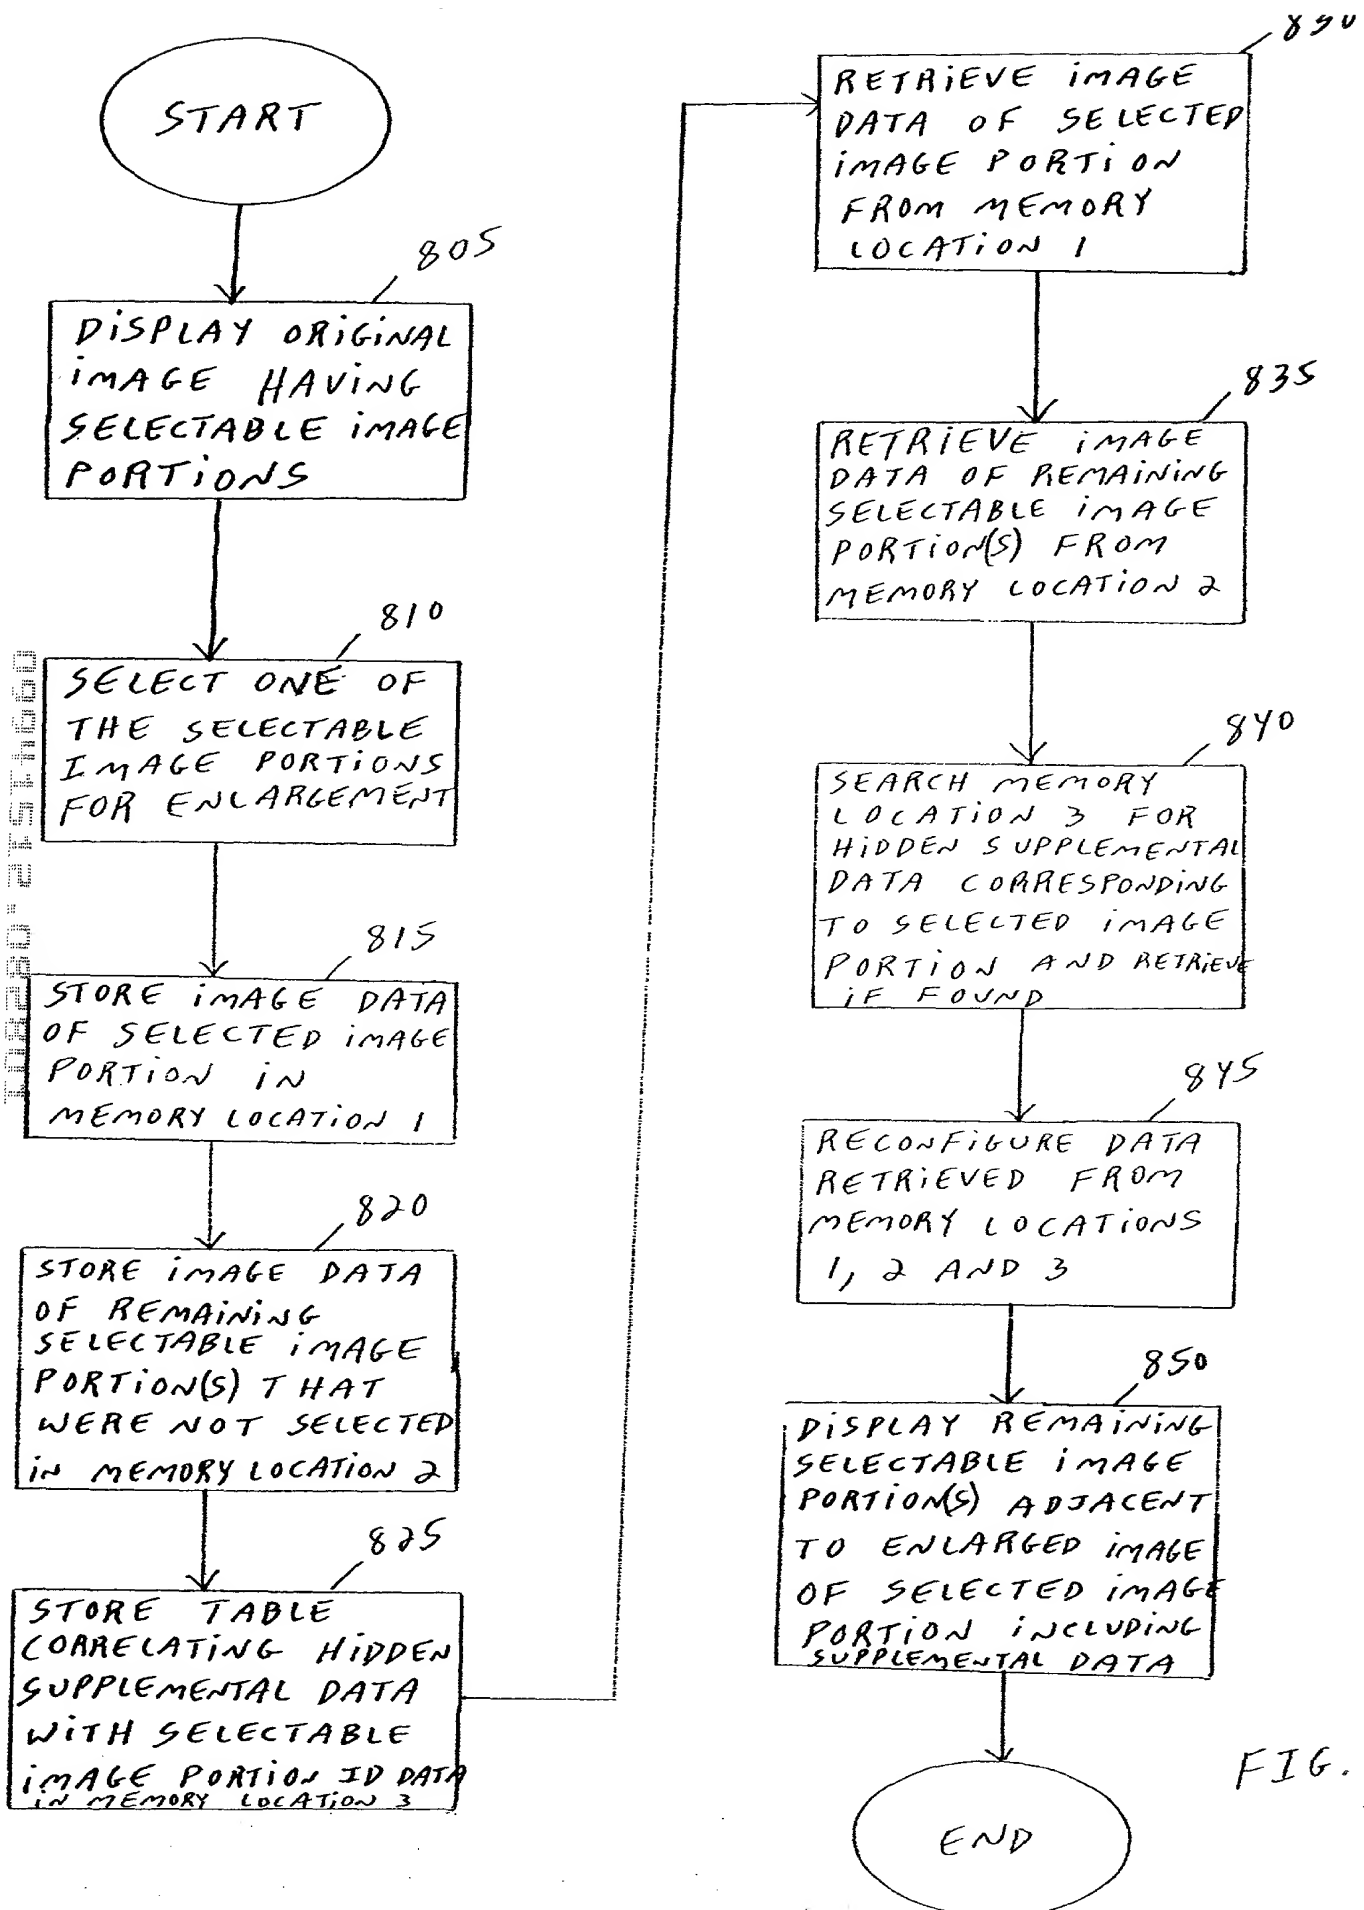 START
805
DISPLAY ORIGINAL
IMAGE HAVING
SELECTABLE IMAGE
PORTIONS
810
SELECT ONE OF
THE SELECTABLE
IMAGE PORTIONS
FOR ENLARGEMENT
815
STORE IMAGE DATA
OF SELECTED IMAGE
PORTION IN
MEMORY LOCATION 1
820
STORE IMAGE DATA
OF REMAINING
SELECTABLE IMAGE
PORTION(S) THAT
WERE NOT SELECTED
IN MEMORY LOCATION 2
825
STORE TABLE
CORRELATING HIDDEN
SUPPLEMENTAL DATA
WITH SELECTABLE
IMAGE PORTION ID DATA
IN MEMORY LOCATION 3
RETRIEVE IMAGE
DATA OF SELECTED
IMAGE PORTION
FROM MEMORY
LOCATION 1
835
RETRIEVE IMAGE
DATA OF REMAINING
SELECTABLE IMAGE
PORTION(S) FROM
MEMORY LOCATION 2
840
SEARCH MEMORY
LOCATION 3 FOR
HIDDEN SUPPLEMENTAL
DATA CORRESPONDING
TO SELECTED IMAGE
PORTION AND RETRIEVE
IF FOUND
845
RECONFIGURE DATA
RETRIEVED FROM
MEMORY LOCATIONS
1, 2 AND 3
850
DISPLAY REMAINING
SELECTABLE IMAGE
PORTION(S) ADJACENT
TO ENLARGED IMAGE
OF SELECTED IMAGE
PORTION INCLUDING
SUPPLEMENTAL DATA
END
FIG.